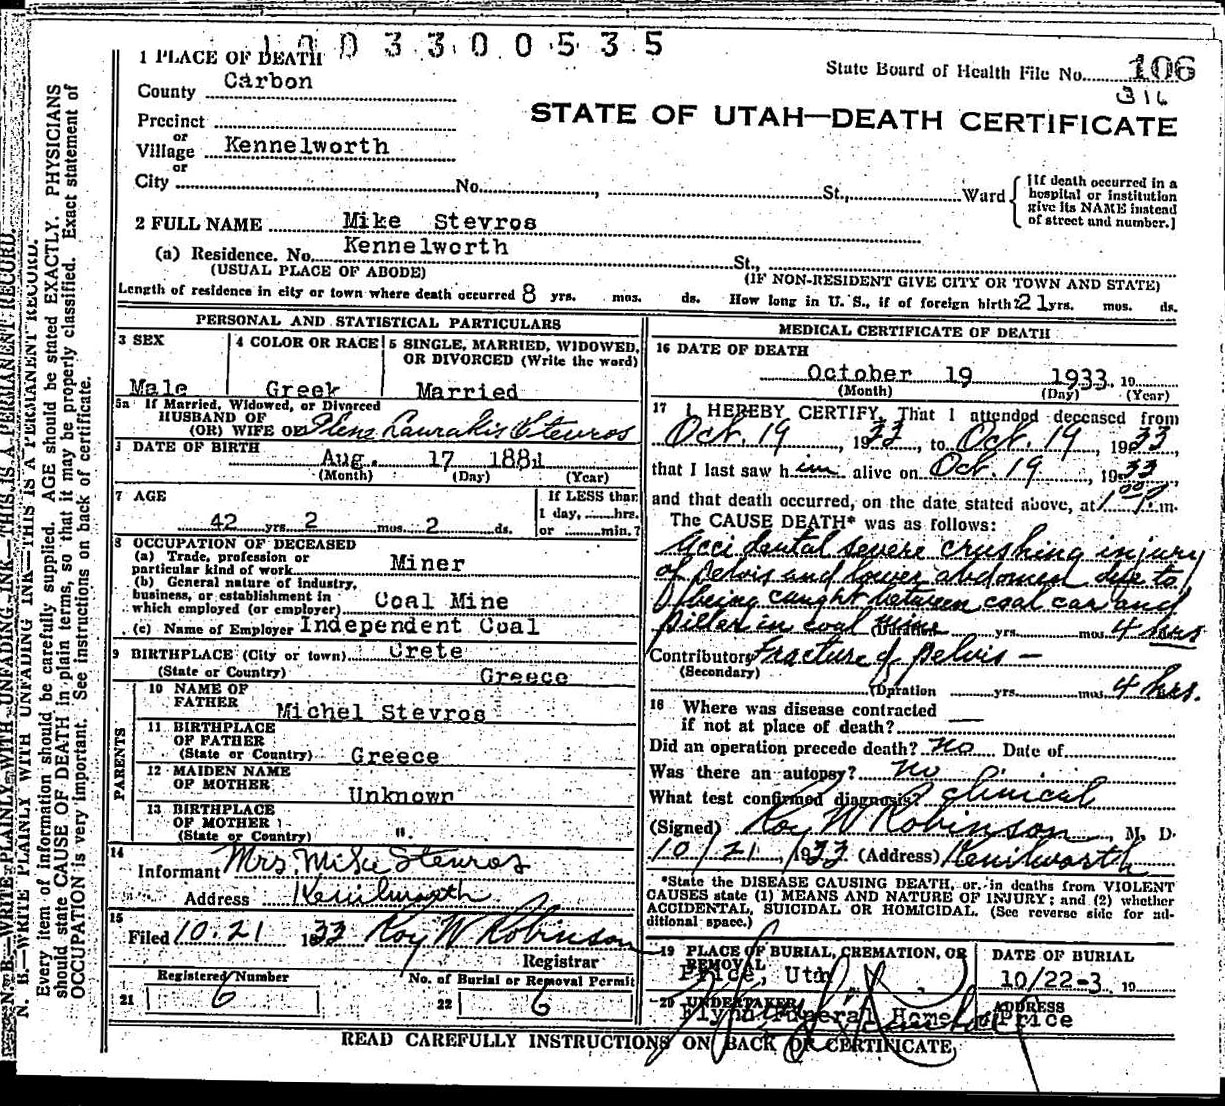 1003300535
1 PLACE OF DEATH
State Board of Health File No. 106
316
County Carbon
STATE OF UTAH—DEATH CERTIFICATE
Precinct
or
Village Kennelworth
or
City No. , St., Ward
[If death occurred in a hospital or institution give its NAME instead of street and number.]
2 FULL NAME Mike Stevros
(a) Residence. No. Kennelworth St.,
(USUAL PLACE OF ABODE) (IF NON-RESIDENT GIVE CITY OR TOWN AND STATE)
Length of residence in city or town where death occurred 8 yrs. mos. ds. How long in U. S., if of foreign birth? 21 yrs. mos. ds.
PERSONAL AND STATISTICAL PARTICULARS
3 SEX 4 COLOR OR RACE 5 SINGLE, MARRIED, WIDOWED,
OR DIVORCED (Write the word)
Male Greek Married
5a If Married, Widowed, or Divorced
HUSBAND OF
(OR) WIFE OF Laurakis Stevros
DATE OF BIRTH
Aug. 17
(Month) (Day) (Year)
7 AGE If LESS than
1 day, hrs.
42 yrs. 2 mos. 2 ds. or min.?
8 OCCUPATION OF DECEASED
(a) Trade, profession or
particular kind of work Miner
(b) General nature of industry,
business, or establishment in
which employed (or employer) Coal Mine
(c) Name of Employer Independent Coal
9 BIRTHPLACE (City or town) Crete
(State or Country) Greece
PARENTS
10 NAME OF
FATHER Michel Stevros
11 BIRTHPLACE
OF FATHER
(State or Country) Greece
12 MAIDEN NAME
OF MOTHER Unknown
13 BIRTHPLACE
OF MOTHER
(State or Country) "
14
Informant Mrs. Mike Stevros
Address Kenilworth
15
Filed 10.21 1933 Roy W Robinson
Registrar
Registered Number No. of Burial or Removal Permit
21 6 22 6
MEDICAL CERTIFICATE OF DEATH
16 DATE OF DEATH
October 19 1933. 19
(Month) (Day) (Year)
17 I HEREBY CERTIFY, That I attended deceased from
Oct. 19, 1933, to Oct. 19, 1933,
that I last saw him alive on Oct. 19, 1933,
and that death occurred, on the date stated above, at 1 00 P.m.
The CAUSE DEATH* was as follows:
Accidental severe crushing injury
of pelvis and lower abdomen due to
being caught between coal car and
pillar in coal mine (Duration) yrs. mos. 4 hrs
Contributory Fracture of pelvis —
(Secondary)
(Duration yrs. mos. 4 hrs.
18 Where was disease contracted
if not at place of death? —
Did an operation precede death? no Date of
Was there an autopsy? no
What test confirmed diagnosis? clinical
(Signed) Roy W Robinson, M. D.
10/21, 1933 (Address) Kenilworth
*State the DISEASE CAUSING DEATH, or, in deaths from VIOLENT
CAUSES state (1) MEANS AND NATURE OF INJURY; and (2) whether
ACCIDENTAL, SUICIDAL OR HOMICIDAL. (See reverse side for ad-
ditional space.)
19 PLACE OF BURIAL, CREMATION, OR
REMOVAL DATE OF BURIAL
Price, Utah 10/22-3. 19
20 UNDERTAKER ADDRESS
Flynn Funeral Home Price
READ CAREFULLY INSTRUCTIONS ON BACK OF CERTIFICATE
N. B.—WRITE PLAINLY WITH UNFADING INK—THIS IS A PERMANENT RECORD.
N. B.—WRITE PLAINLY WITH UNFADING INK—THIS IS A PERMANENT RECORD.
Every item of information should be carefully supplied. AGE should be stated EXACTLY. PHYSICIANS
should state CAUSE OF DEATH in plain terms, so that it may be properly classified. Exact statement of
OCCUPATION is very important. See instructions on back of certificate.